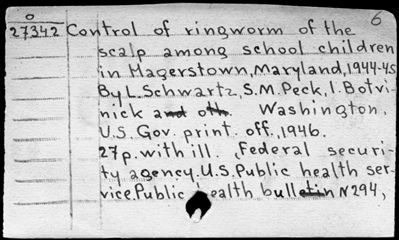 6
0
27342 Control of ringworm of the
scalp among school children
in Hagerstown, Maryland, 1944-45
By L. Schwartz, S.M. Peck, I. Botvi-
nick and oth. Washington,
U.S. Gov. print. off., 1946.
27p. with ill. Federal securi-
ty agency. U.S. Public health ser-
vice. Public ealth bulletin N294,